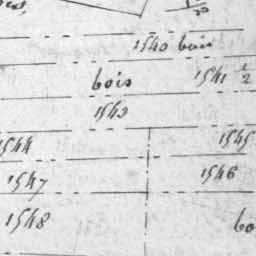 1/20
1540 bois
bois 1541 1/2
1543
1544 1545
1547 1546
1548 bo